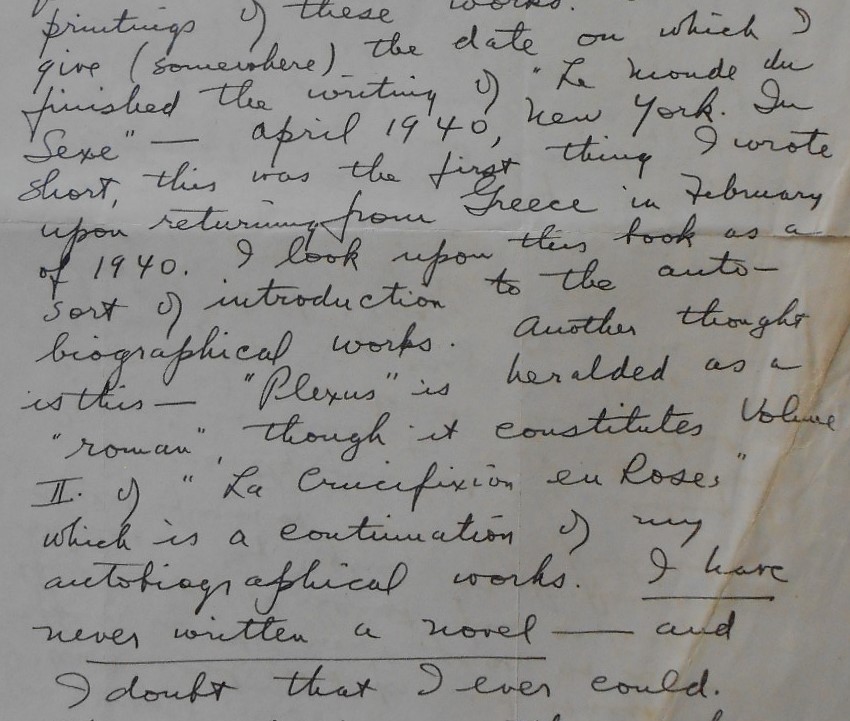 printings of these works.
give (somewhere) the date on which I
finished the writing of "Le Monde du
Sexe" — april 1940, New York. In
short, this was the first thing I wrote
upon returning from Greece in February
of 1940. I look upon this book as a
sort of introduction to the auto-
biographical works. Another thought
is this — "Plexus" is heralded as a
"roman", though it constitutes Volume
II. of "La Crucifixion en Roses"
which is a continuation of my
autobiographical works. I have
never written a novel — and
I doubt that I ever could.